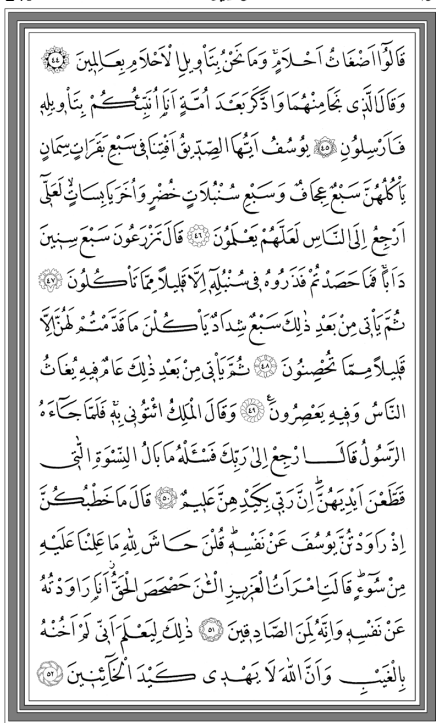 قَالُٓوا اَضْغَاثُ اَحْلَامٍۚ وَمَا نَحْنُ بِتَأْوٖيلِ الْاَحْلَامِ بِعَالِمٖينَ ﴿٤٤﴾
وَقَالَ الَّذٖي نَجَا مِنْهُمَا وَادَّكَرَ بَعْدَ اُمَّةٍ اَنَا۬ اُنَبِّئُكُمْ بِتَأْوٖيلِهٖ
فَاَرْسِلُونِ ﴿٤٥﴾ يُوسُفُ اَيُّهَا الصِّدّٖيقُ اَفْتِنَا فٖي سَبْعِ بَقَرَاتٍ سِمَانٍ
يَأْكُلُهُنَّ سَبْعٌ عِجَافٌ وَسَبْعِ سُنْبُلَاتٍ خُضْرٍ وَاُخَرَ يَابِسَاتٍۙ لَعَلّٖٓي
اَرْجِعُ اِلَى النَّاسِ لَعَلَّهُمْ يَعْلَمُونَ ﴿٤٦﴾ قَالَ تَزْرَعُونَ سَبْعَ سِنٖينَ
دَاَباًۚ فَمَا حَصَدْتُمْ فَذَرُوهُ فٖي سُنْبُلِهٖٓ اِلَّا قَلٖيلاً مِمَّا تَأْكُلُونَ ﴿٤٧﴾
ثُمَّ يَأْتٖي مِنْ بَعْدِ ذٰلِكَ سَبْعٌ شِدَادٌ يَأْكُلْنَ مَا قَدَّمْتُمْ لَهُنَّ اِلَّا
قَلٖيلاً مِمَّا تُحْصِنُونَ ﴿٤٨﴾ ثُمَّ يَأْتٖي مِنْ بَعْدِ ذٰلِكَ عَامٌ فٖيهِ يُغَاثُ
النَّاسُ وَفٖيهِ يَعْصِرُونَ۟ ﴿٤٩﴾ وَقَالَ الْمَلِكُ ائْتُونٖي بِهٖۚ فَلَمَّا جَٓاءَهُ
الرَّسُولُ قَالَ ارْجِعْ اِلٰى رَبِّكَ فَسْـَٔلْهُ مَا بَالُ النِّسْوَةِ الّٰتٖي
قَطَّعْنَ اَيْدِيَهُنَّۜ اِنَّ رَبّٖي بِكَيْدِهِنَّ عَلٖيمٌ ﴿٥٠﴾ قَالَ مَا خَطْبُكُنَّ
اِذْ رَاوَدْتُنَّ يُوسُفَ عَنْ نَفْسِهٖۜ قُلْنَ حَاشَ لِلّٰهِ مَا عَلِمْنَا عَلَيْهِ
مِنْ سُٓوءٍۜ قَالَتِ امْرَاَتُ الْعَزٖيزِ الْـٰٔنَ حَصْحَصَ الْحَقُّۘ اَنَا۬ رَاوَدْتُهُ
عَنْ نَفْسِهٖ وَاِنَّهُ لَمِنَ الصَّادِقٖينَ ﴿٥١﴾ ذٰلِكَ لِيَعْلَمَ اَنّٖي لَمْ اَخُنْهُ
بِالْغَيْبِ وَاَنَّ اللّٰهَ لَا يَهْدٖي كَيْدَ الْخَٓائِنٖينَ ﴿٥٢﴾